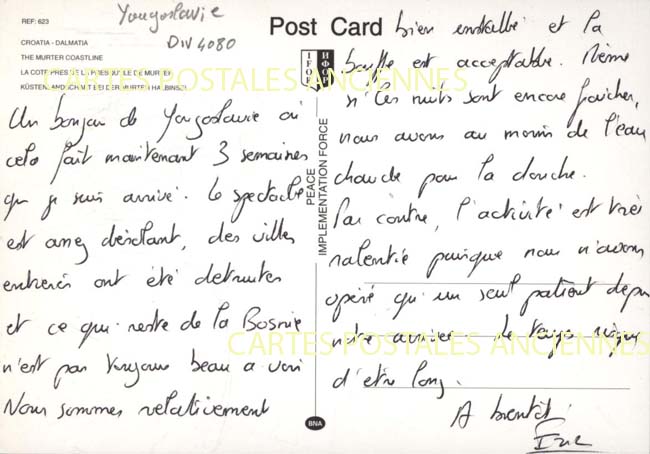 Yougoslavie
DIV 4080
REF: 623
CROATIA - DALMATIA
THE MURTER COASTLINE
LA COTE PRES DE LA PRESQU'ILE DE MURTER
KÜSTENLANDSCHAFT BEI DER MURTER HALBINSEL
Post Card
IFOR
ИФОР
PEACE
IMPLEMENTATION FORCE
CARTES POSTALES ANCIENNES
Un bonjour de Yougoslavie où
cela fait maintenant 3 semaines
que je suis arrivé. Le spectacle
est assez désolant, des villes
entières ont été detruites
et ce qui reste de la Bosnie
n'est pas toujours beau a voir
Nous sommes relativement
bien installé et la
bouffe est acceptable. Même
si les nuits sont encore fraiches,
nous avons au moins de l'eau
chaude pour la douche.
Par contre, l'activité est très
ralentie puisque nous n'avons
opéré qu'un seul patient depuis
notre arrivée. Le temps risque
d'être long.
A bientôt.
CARTES POSTALES ANCIENNES
BNA